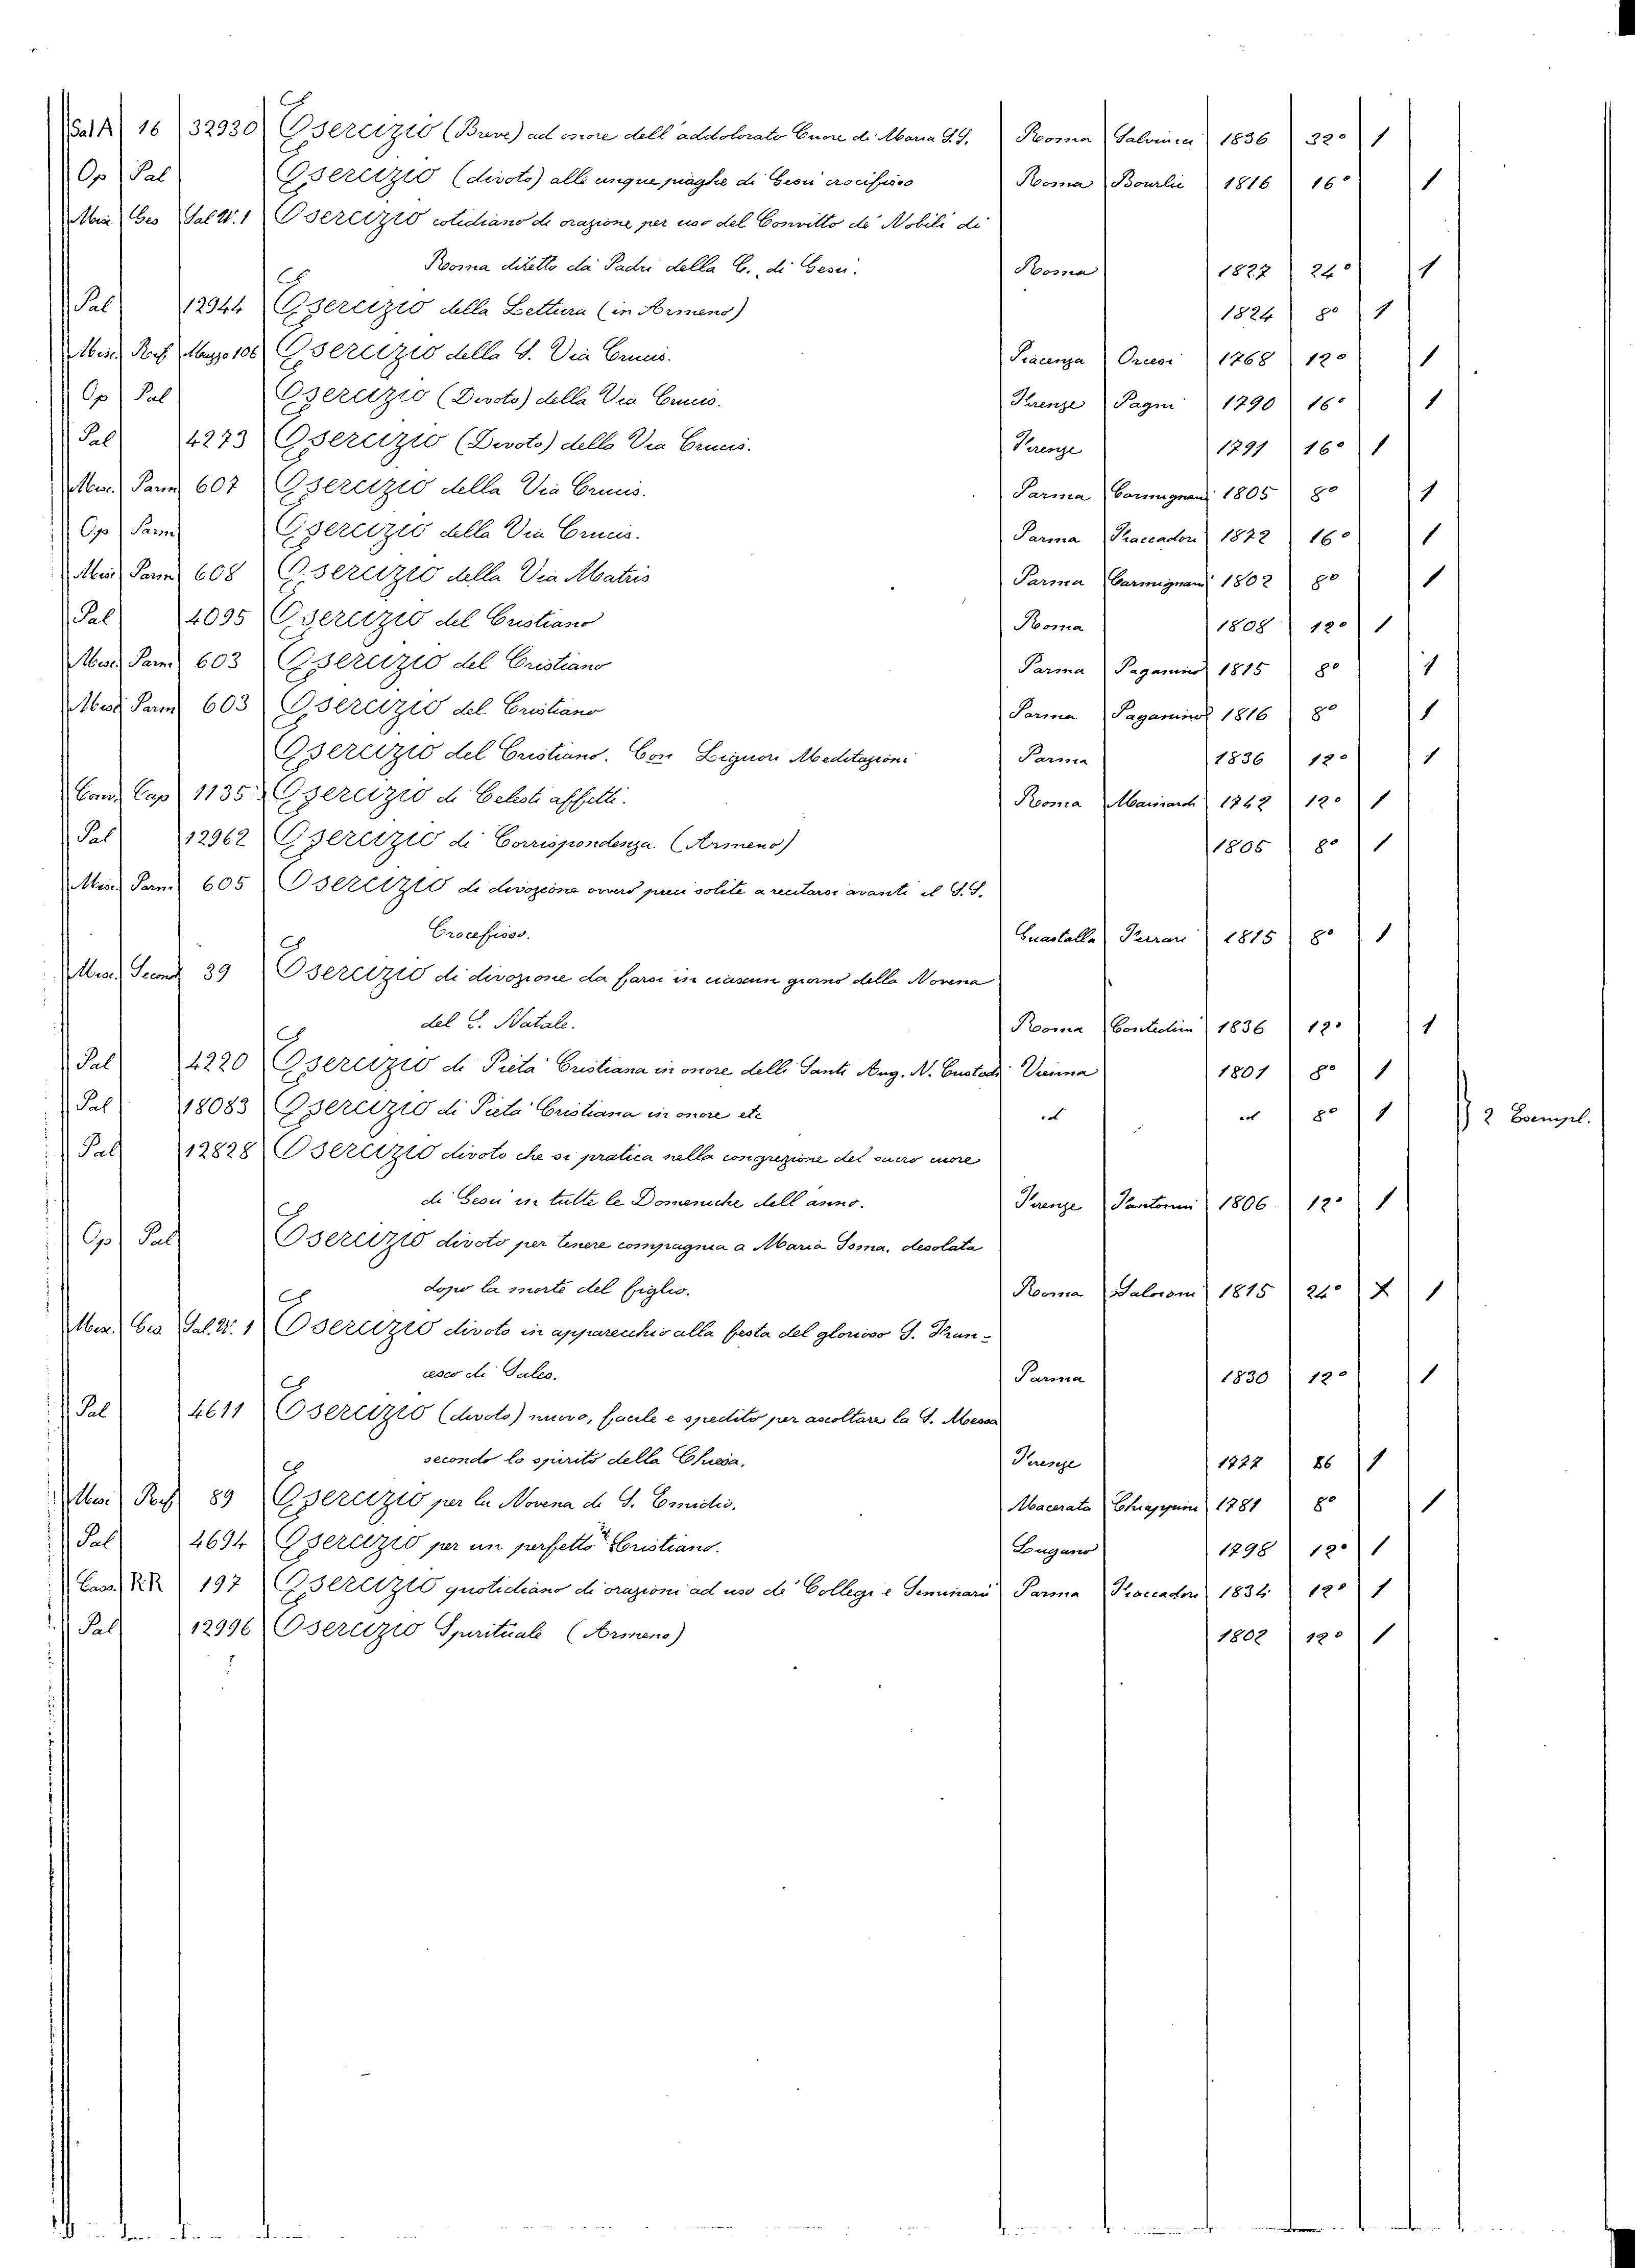 Sal A 16 32930 Esercizio (Breve) ad onore dell'addolorato Cuore di Maria S.S. Roma Salviucci 1836 32° 1
Op Pal Esercizio (divoto) alle cinque piaghe di Gesù crocifisso Roma Bourlie 1816 16° 1
Misc Ges Sal W. 1 Esercizio cotidiano di orazione per uso del Convitto de' Nobili di
Roma diretto dai Padri della C. di Gesù. Roma 1827 24° 1
Pal 12944 Esercizio della Lettura (in Armeno) 1824 8° 1
Misc. Rof. Mazzo 106 Esercizio della S. Via Crucis. Piacenza Orcesi 1768 12° 1
Op Pal Esercizio (Devoto) della Via Crucis. Firenze Pagni 1790 16° 1
Pal 4273 Esercizio (Devoto) della Via Crucis. Firenze 1791 16° 1
Misc. Parm 607 Esercizio della Via Crucis. Parma Carmignani 1805 8° 1
Op Parm Esercizio della Via Crucis. Parma Fiaccadori 1872 16° 1
Misc Parm 608 Esercizio della Via Matris Parma Carmignani 1802 8° 1
Pal 4095 Esercizio del Cristiano Roma 1808 12° 1
Misc. Parm 603 Esercizio del Cristiano Parma Paganino 1815 8° 1
Misc. Parm 603 Esercizio del Cristiano Parma Paganino 1816 8° 1
Esercizio del Cristiano. Con Liguori Meditazioni Parma 1836 12° 1
Cap 1135 Esercizio di Celesti affetti. Roma Mainardi 1742 12° 1
Pal 12962 Esercizio di Corrispondenza. (Armeno) 1805 8° 1
Misc. Parm. 605 Esercizio di divozione ovvero preci solite a recitarsi avanti il S.S.
Crocefisso. Guastalla Ferrari 1815 8° 1
Misc. Second 39 Esercizio di divozione da farsi in ciascun giorno della Novena
del S. Natale. Roma Contedini 1836 12° 1
Pal 4220 Esercizio di Pietà Cristiana in onore delli Santi Ang. N. Custodi Vienna 1801 8° 1
Pal 18083 Esercizio di Pietà Cristiana in onore etc id id 8° 1 2 Esempl.
Pal 12828 Esercizio divoto che si pratica nella congrezione del sacro cuore
di Gesù in tutte le Domeniche dell'anno. Firenze Pantosini 1806 12° 1
Op Pal Esercizio divoto per tenere compagnia a Maria Ssma. desolata
dopo la morte del figlio. Roma Salvioni 1815 24° X 1
Misc. Ges Sal. W. 1 Esercizio divoto in apparecchio alla festa del glorioso S. Fran-
cesco di Sales. Parma 1830 12° 1
Pal 4611 Esercizio (divoto) nuovo, facile e spedito per ascoltare la S. Messa
secondo lo spirito della Chiesa. Firenze 1777 86 1
Misc Rof 89 Esercizio per la Novena di S. Emidio. Macerata Chiappini 1781 8° 1
Pal 4694 Esercizio per un perfetto Cristiano. Lugano 1798 12° 1
Cass. RR 197 Esercizio quotidiano di orazioni ad uso de' Collegi e Seminarii Parma Fiaccadori 1834 12° 1
Pal 12996 Esercizio Spirituale (Armeno) 1802 12° 1